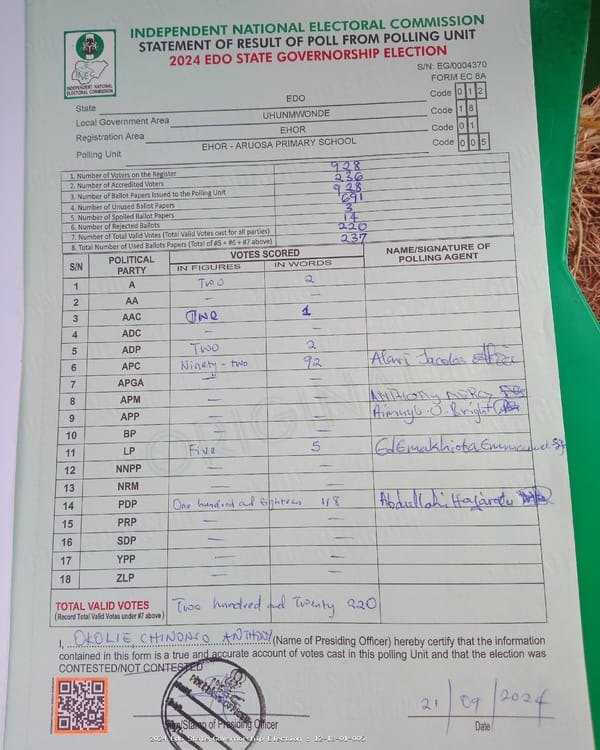 INDEPENDENT NATIONAL ELECTORAL COMMISSION
STATEMENT OF RESULT OF POLL FROM POLLING UNIT
2024 EDO STATE GOVERNORSHIP ELECTION
INEC
INDEPENDENT NATIONAL
ELECTORAL COMMISSION
S/N: EG/0004370
FORM EC 8A
State EDO Code 0 1 2
Local Government Area UHUNMWONDE Code 1 8
Registration Area EHOR Code 0 1
Polling Unit EHOR - ARUOSA PRIMARY SCHOOL Code 0 0 5
1. Number of Voters on the Register 928
2. Number of Accredited Voters 236
3. Number of Ballot Papers Issued to the Polling Unit 928
4. Number of Unused Ballot Papers 691
5. Number of Spoiled Ballot Papers 3
6. Number of Rejected Ballots 14
7. Number of Total Valid Votes (Total Valid Votes cast for all parties) 220
8. Total Number of Used Ballots Papers (Total of #5 + #6 + #7 above) 237
S/N POLITICAL PARTY VOTES SCORED NAME/SIGNATURE OF POLLING AGENT
IN FIGURES IN WORDS
1 A Two 2
2 AA — —
3 AAC One 1
4 ADC — —
5 ADP Two 2
6 APC Ninety-two 92 Alari Jacobs
7 APGA — —
8 APM — — ANTHONY MERCY
9 APP — — O. Bright
10 BP — —
11 LP Five 5 Emmanuel
12 NNPP — —
13 NRM — —
14 PDP One hundred and Eighteen 118 Abdullahi
15 PRP — —
16 SDP — —
17 YPP — —
18 ZLP — —
TOTAL VALID VOTES Two hundred and Twenty 220
(Record Total Valid Votes under #7 above)
I, OKOLIE CHINONSO ANTHONY (Name of Presiding Officer) hereby certify that the information
contained in this form is a true and accurate account of votes cast in this polling Unit and that the election was
CONTESTED/NOT CONTESTED
21/09/2024
Sign/Stamp of Presiding Officer Date
2024 Edo State Governorship Election - 12-18-01-005